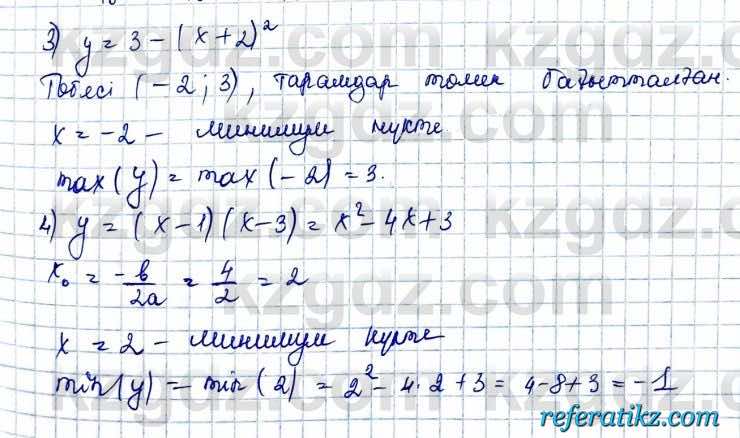 3) y = 3 - (x+2)²
Төбесі (-2; 3), тармақтар төмен бағытталған.
x = -2 - минимум нүкте
max(y) = max(-2) = 3.
4) y = (x-1)(x-3) = x² - 4x + 3
x₀ = -b/2a = 4/2 = 2
x = 2 - минимум нүкте
min(y) = min(2) = 2² - 4·2 + 3 = 4-8+3 = -1
referatikz.com